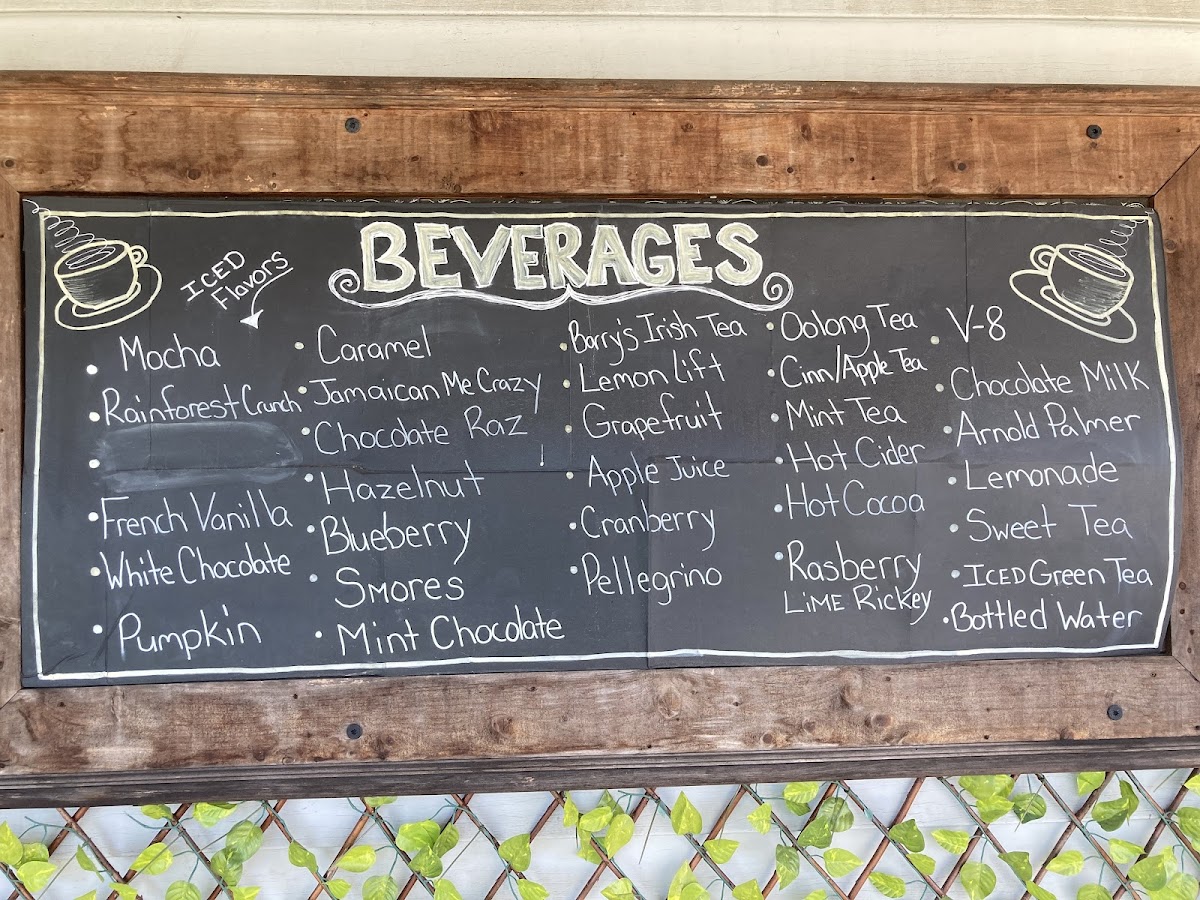 BEVERAGES
ICED
Flavors
Mocha
Rainforest Crunch
French Vanilla
White Chocolate
Pumpkin
Caramel
Jamaican Me Crazy
Chocolate Raz
Hazelnut
Blueberry
Smores
Mint Chocolate
Barry's Irish Tea
Lemon Lift
Grapefruit
Apple Juice
Cranberry
Pellegrino
Oolong Tea
Cinn/Apple Tea
Mint Tea
Hot Cider
Hot Cocoa
Rasberry
Lime Rickey
V-8
Chocolate Milk
Arnold Palmer
Lemonade
Sweet Tea
ICED Green Tea
Bottled Water